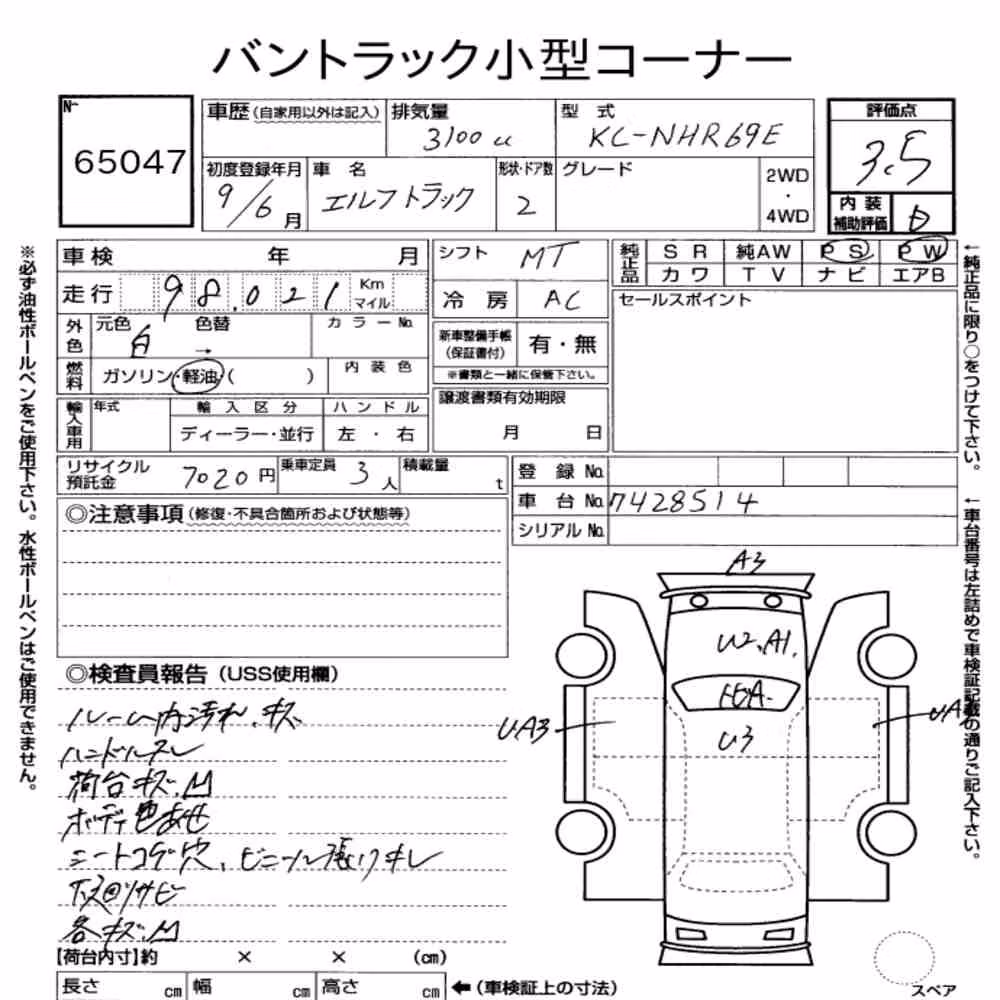 バントラック小型コーナー
No.
65047
車歴(自家用以外は記入)
排気量
3100 cc
型 式
KC-NHR69E
評価点
3.5
初度登録年月
9/6月
車 名
エルフトラック
形状・ドア数
2
グレード
2WD
・
4WD
内 装
補助評価
D
車検 年 月
シフト
MT
純正品
SR 純AW PS PW
カワ TV ナビ エアB
走行 98.021 Km マイル
冷 房
AC
セールスポイント
外色
元色 色替
白 →
カラーNo.
新車整備手帳
(保証書付)
有・無
※書類と一緒に保管下さい。
燃料
ガソリン・軽油・( )
内 装 色
譲渡書類有効期限
月 日
輸入車用
年式
輸 入 区 分
ハ ン ド ル
ディーラー・並行
左 ・ 右
リサイクル
預託金
7020円
乗車定員
3人
積載量
t
登 録 No.
車 台 No.
7428514
シリアル No.
◎注意事項(修復・不具合箇所および状態等)
◎検査員報告(USS使用欄)
ルーム内汚れ、キズ
ハンドルスレ
荷台キズ、凹
ボディ色あせ
シートコゲ穴、ビニール張りキレ
下廻りサビ
各キズ、凹
A3
W2.A1.
UA3
U3
【荷台内寸】約 × × (cm)
長さ cm
幅 cm
高さ cm
←(車検証上の寸法)
スペア
※必ず油性ボールペンをご使用下さい。水性ボールペンはご使用できません。
←純正品に限り○をつけて下さい。
←車台番号は左詰めで車検証記載の通りご記入下さい。